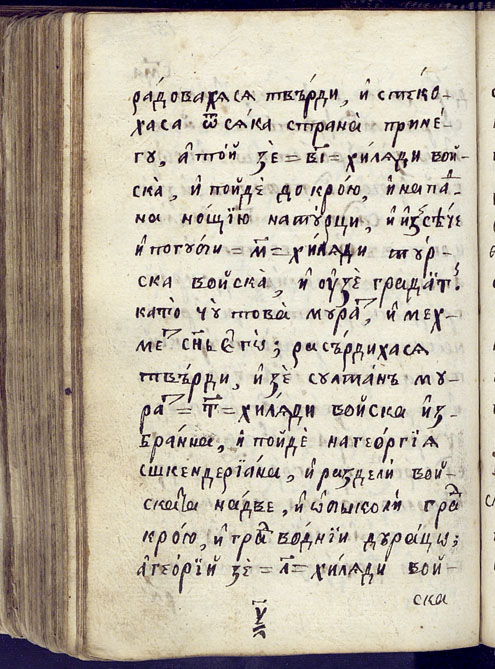 ра́довахꙋсѧ твъ́рди, и҆ стеко-
хаса ѿ сѧ́ка странà приме́-
гу, а҆ то́й зѐ = в҃і = хи́лѧди вой-
скà, и҆ пойдѐ до кро́ю, и҆ напа́д-
на но́щїю на тꙋ́рци, и҆ и҆зсѣ́че
и҆ погуби = м҃ = хи́лѧди тур-
ска войскà, и҆ оу҆зѐ градат̾.
като̀ чꙋ това̀ мура́т, и҆ мех-
ме́т сн҃ъ є҆гѡ̀; расъ́рдихасѧ
твъ́рди, и҆ зѐ султа́нъ му-
ра́т = т҃ = хи́лѧди войска и҆з-
бра́нна, и҆ пойдѐ на геѻ́ргїѧ
сшкендерїа́на, и҆ раздели вой-
ската на́две, и҆ ѡ҆пколи гра́д
кро́ю, и҆ гра́д во́днїи дура́цѡ;
а҆ геѻ́ргїй зе = л҃ = хи́лѧди вой-
ска